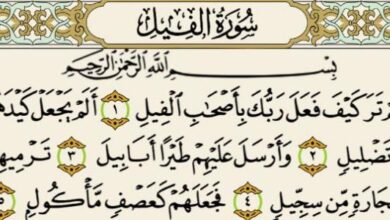 سُورَةُ الْفِيلِ
بِسْمِ اللَّهِ الرَّحْمَٰنِ الرَّحِيمِ
تَرَ كَيْفَ فَعَلَ رَبُّكَ بِأَصْحَابِ الْفِيلِ ١ أَلَمْ يَجْعَلْ كَيْدَهُ
تَضْلِيلٍ ٢ وَأَرْسَلَ عَلَيْهِمْ طَيْرًا أَبَابِيلَ ٣ تَرْمِيهِ
جَارَةٍ مِّن سِجِّيلٍ ٤ فَجَعَلَهُمْ كَعَصْفٍ مَّأْكُولٍ ٥